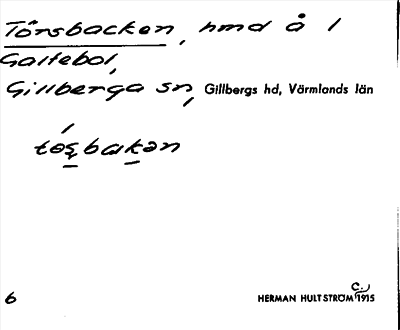 Törsbacken, hmd å 1
Galtebol,
Gillberga sn, Gillbergs hd, Värmlands län
6
HERMAN HULTSTRÖM 1915